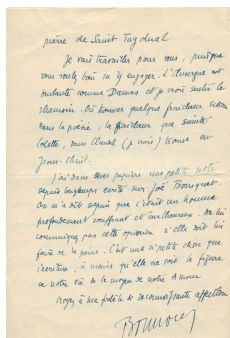 pierre de Saint Tugdual
Je vais travailler pour vous, puisque
vous voulez bien m'y engager. L'Auvergne est
brûlante comme Damas et je crois sentir le
chamois. Où trouver quelque fraîcheur sinon
dans la poésie, la fraîcheur que sainte
Colette, dans Claudel (je crois) trouve en
Jésus-Christ.
J'ai dans mes papiers une petite note
depuis longtemps écrite sur Joë Bousquet.
On m'a dit depuis que c'était un homme
profondément souffrant et malheureux. Ne lui
communiquez pas cette opinion si elle doit lui
faire de la peine. C'est une si petite chose que
l'écriture, à moins qu'elle ne soit la figure
de notre foi ou le moyen de notre Amour
Croyez à ma fidèle et reconnaissante affection